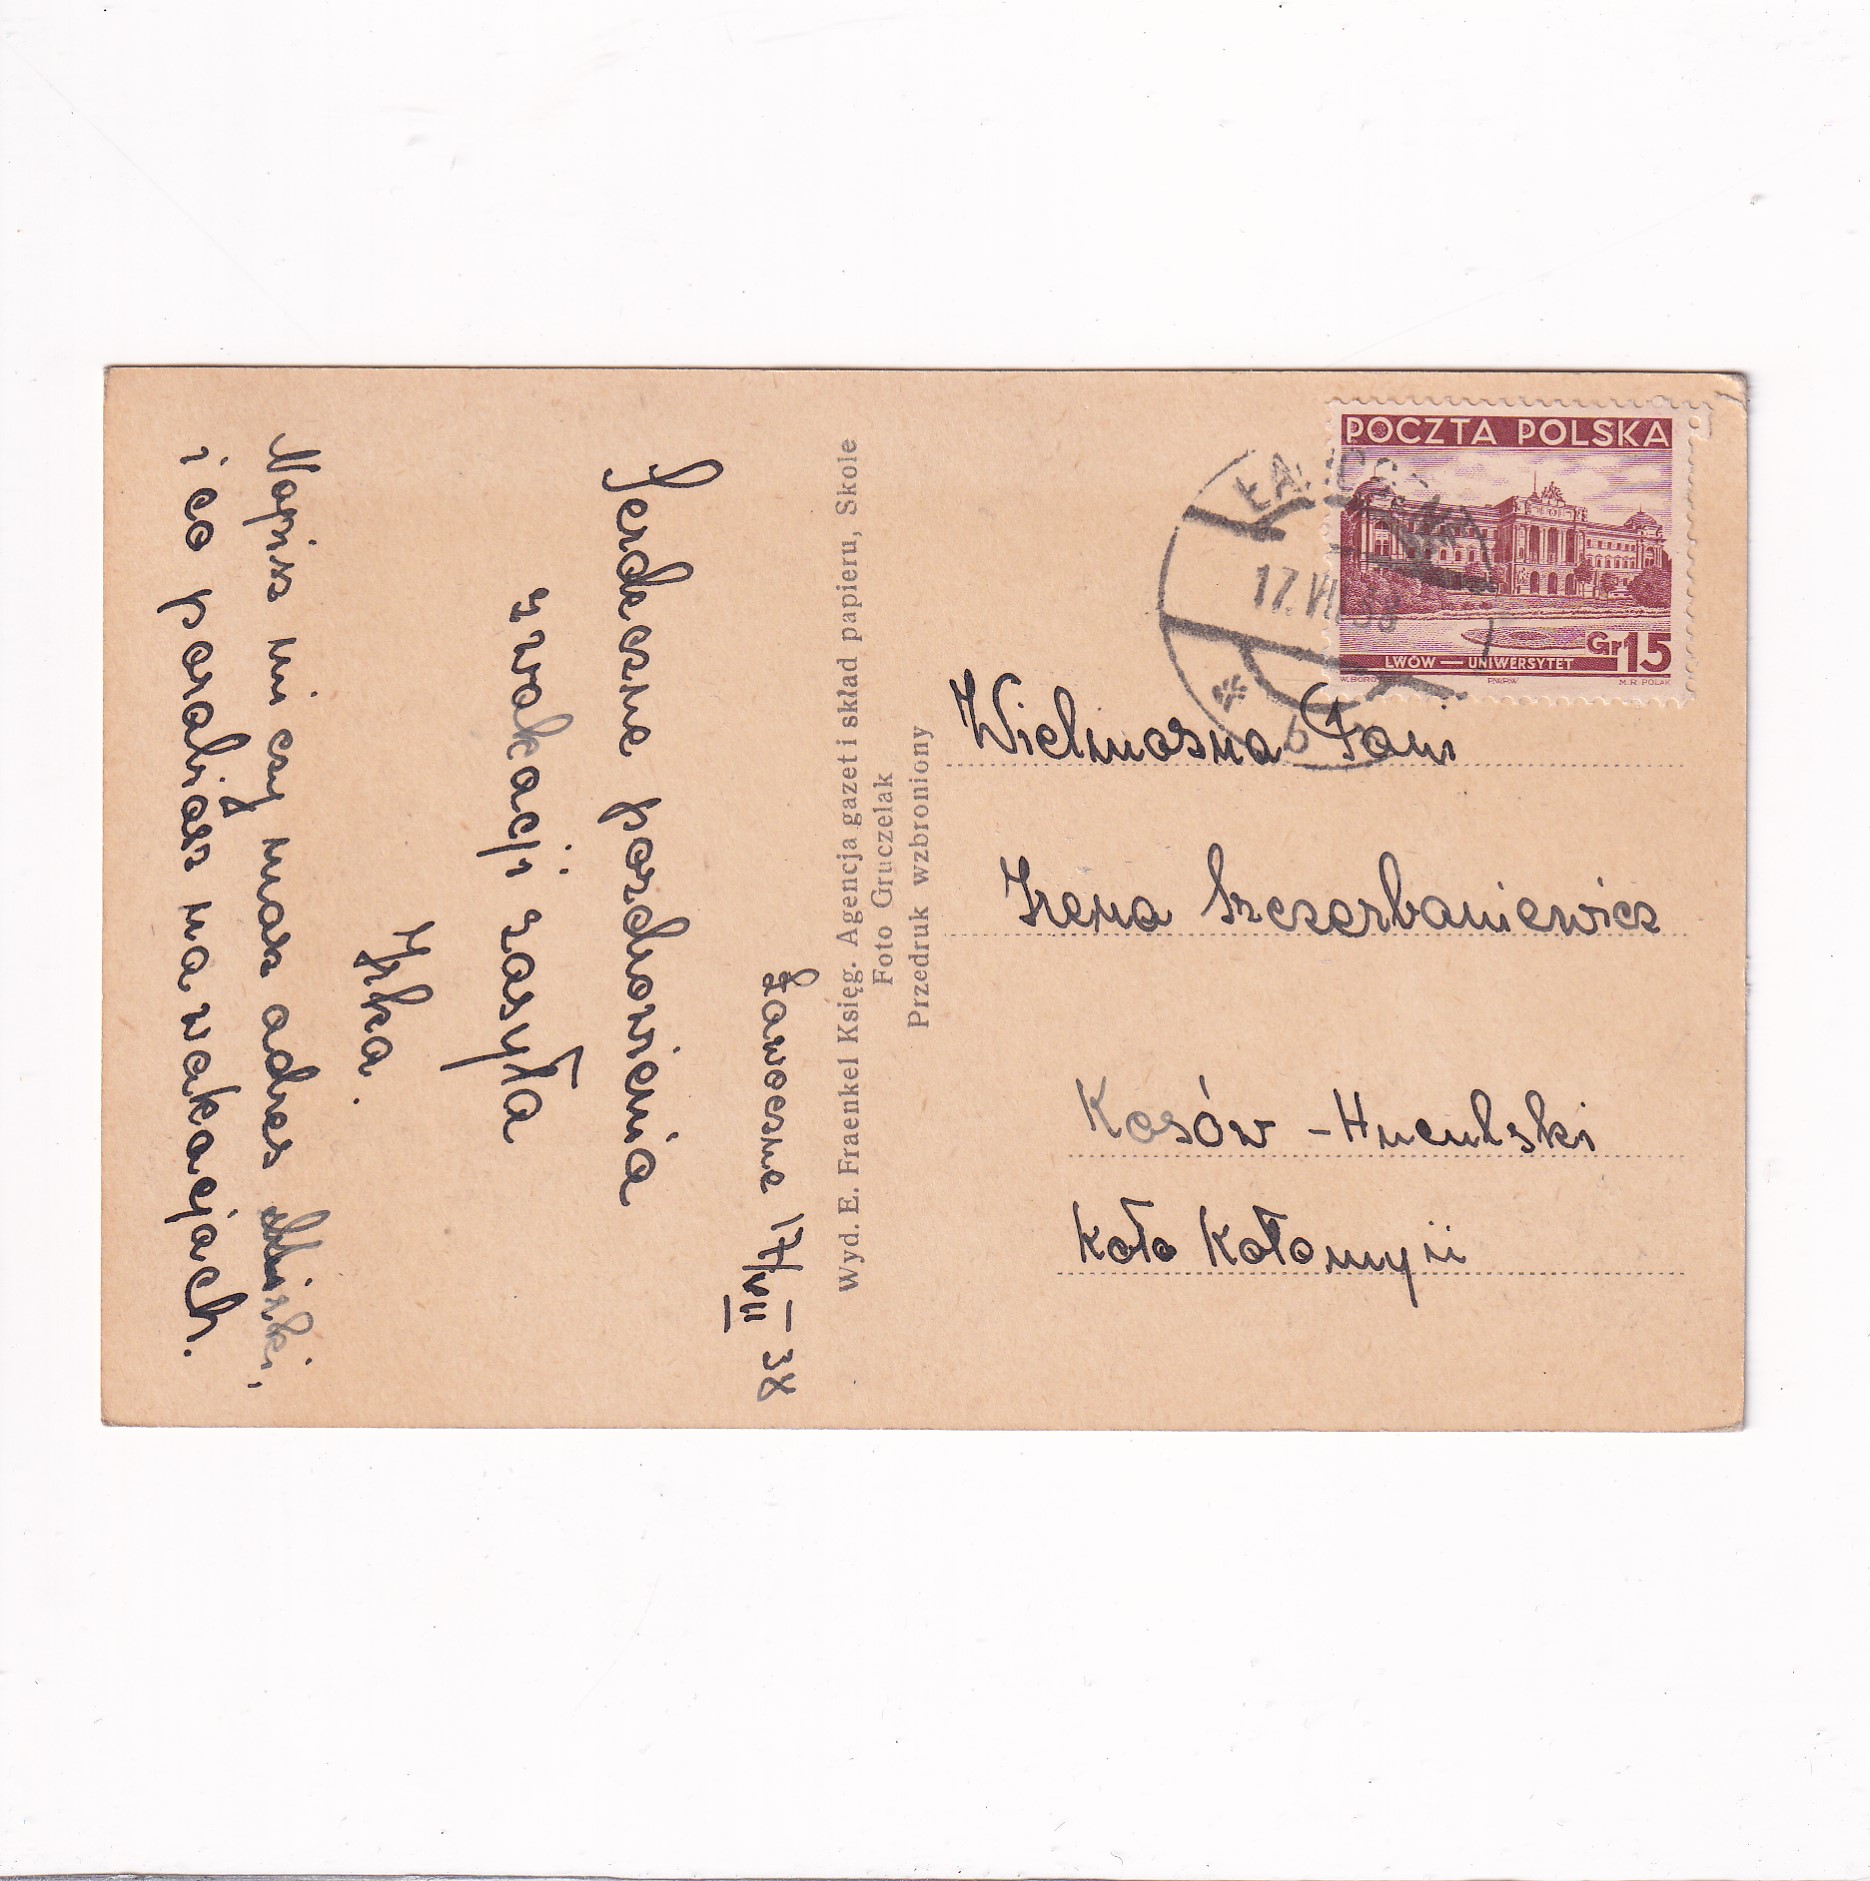 Ławoczne 17/VII – 38
Serdeczne pozdrowienia
z wakacji zasyła
Irka.
Napisz mi czy masz adres
i co porabiasz na wakacjach.
Wyd. E. Fraenkel Księg. Agencja gazet i skład papieru, Skole
Foto Gruczelak
Przedruk wzbroniony
POCZTA POLSKA
Gr 15
LWÓW — UNIWERSYTET
W. BORO
PWPW
M.R. POLAK
17. VII 38
b
Wielmożna Pani
Irena Szczerbaniewicz
Kosów - Huculski
koło Kołomyji